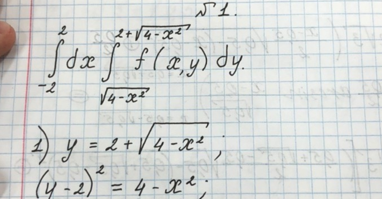 №1.
∫₋₂² dx ∫_{√(4-x²)}^{2+√(4-x²)} f(x,y) dy.
1) y = 2+√(4-x²);
(y-2)² = 4-x²;